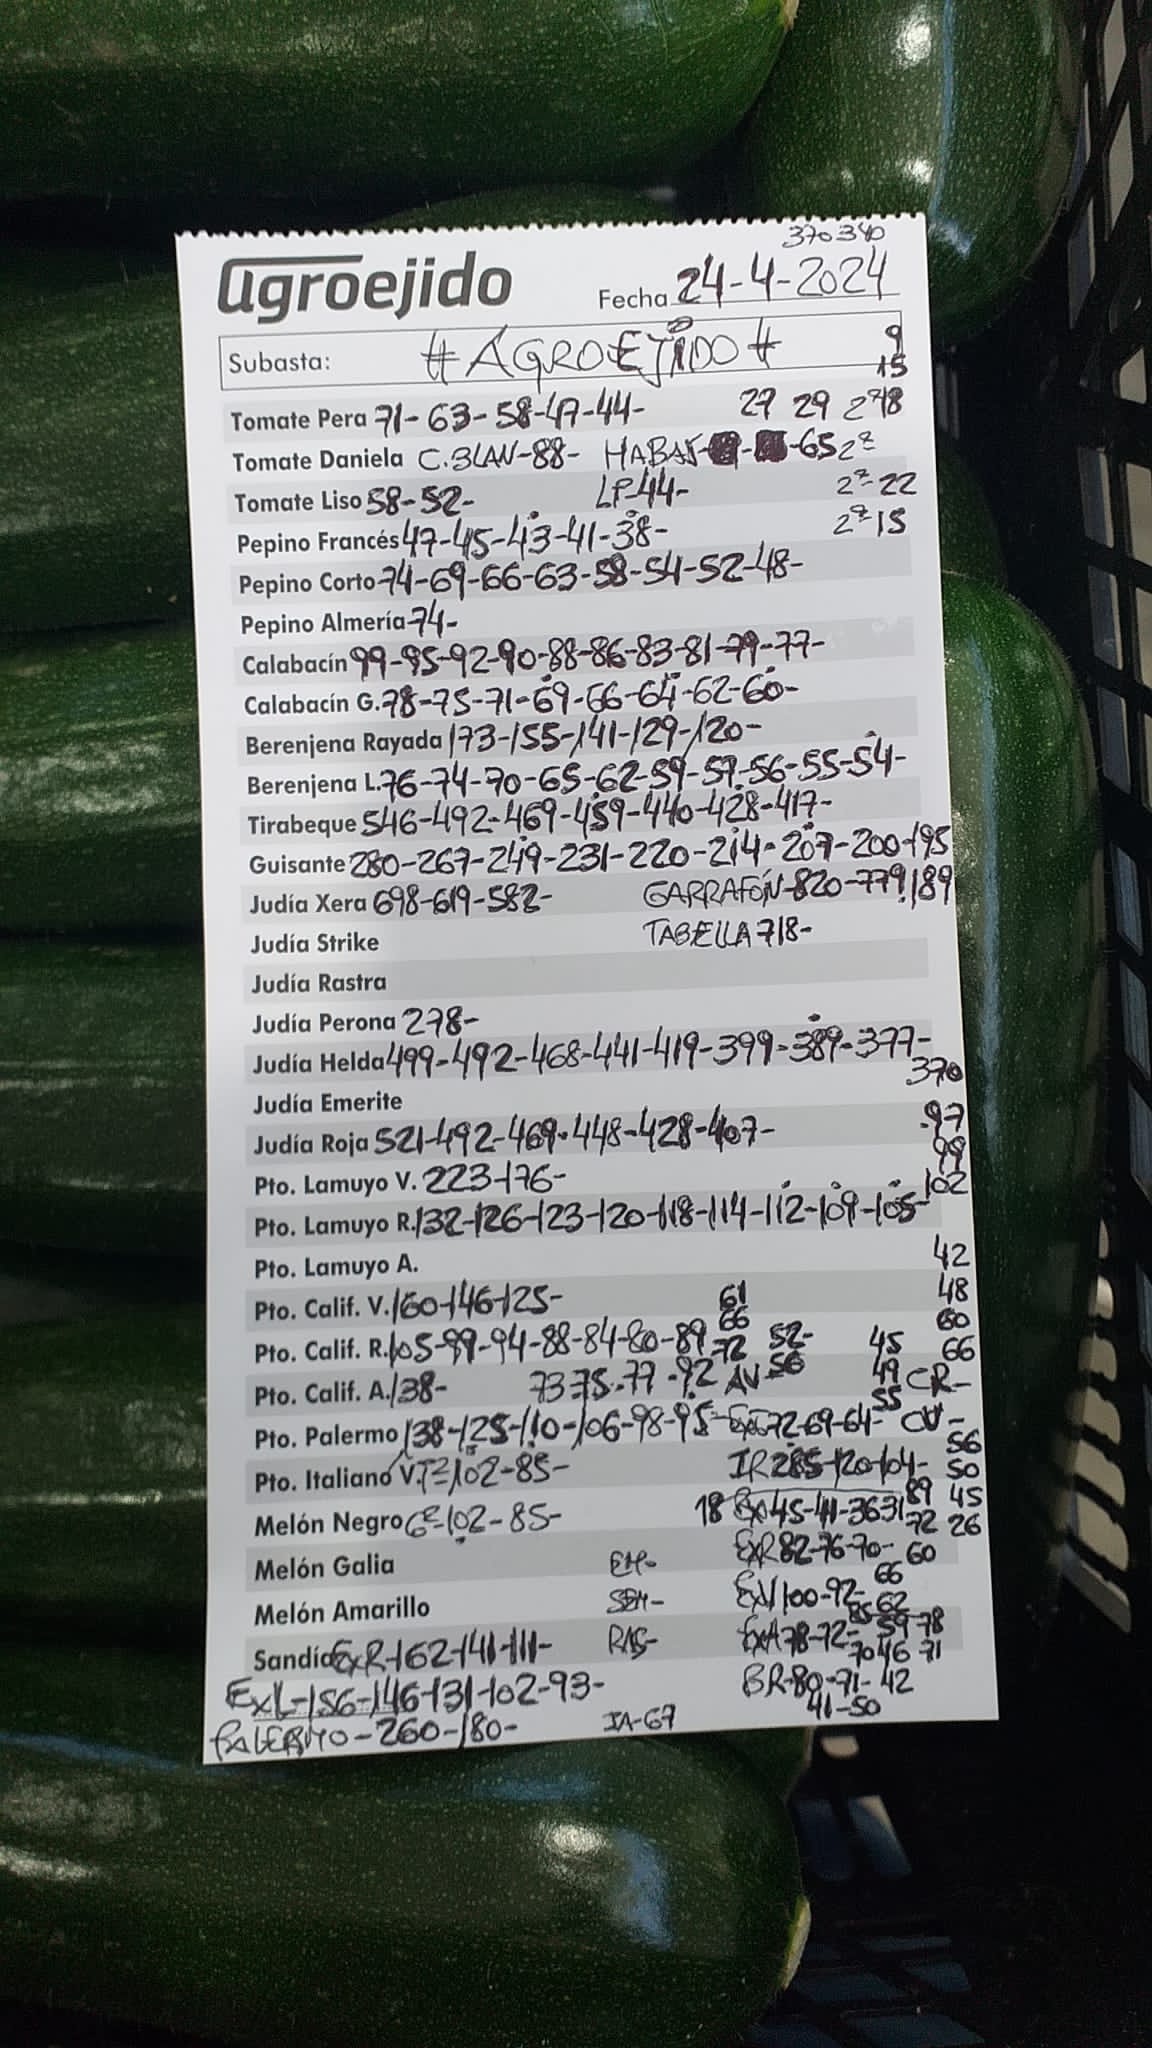 370 340
agroejido
Fecha 24-4-2024
Subasta: #AGROEJIDO# 9
15
Tomate Pera 71-63-58-47-44- 27 29 2ª18
Tomate Daniela C.BLAN-88- HABAS- -65 2ª
Tomate Liso 58-52- LP-44- 2ª-22
Pepino Francés 47-45-43-41-38- 2ª15
Pepino Corto 74-69-66-63-58-54-52-48-
Pepino Almería 74-
Calabacín 99-95-92-90-88-86-83-81-79-77-
Calabacín G. 78-75-71-69-66-64-62-60-
Berenjena Rayada 173-155-141-129-120-
Berenjena L. 76-74-70-65-62-59-57-56-55-54-
Tirabeque 546-492-469-459-440-428-417-
Guisante 280-267-249-231-220-214-207-200-195
Judía Xera 698-619-582- GARRAFÓN-820-779 189
Judía Strike TABELLA 718-
Judía Rastra
Judía Perona 278-
Judía Helda 499-492-468-441-419-399-389-377-
370
Judía Emerite
Judía Roja 521-492-469-448-428-407- 97
99
Pto. Lamuyo V. 223-176- 102
Pto. Lamuyo R. 132-126-123-120-118-114-112-109-105-
Pto. Lamuyo A. 42
Pto. Calif. V. 160-146-125- 61 48
66 60
Pto. Calif. R. 105-99-94-88-84-80-89 72 52- 45 66
Pto. Calif. A. 138- 73 75-77-92 AV-56 49 CR-
55
Pto. Palermo 138-125-110-106-98-95- 72-69-64- CV-
56
Pto. Italiano V. 102-85- IR 285-120-104- 50
Melón Negro 102-85- 18 45-41-36 31 89 45
72 26
Melón Galia EM- EXR 82-76-70- 60
66
Melón Amarillo SEM- EXV 100-92- 62
Sandía EXR-162-141-111- RAS- EXA 78-72- 59 78
70 46 71
EXL-156-146-131-102-93- BR-80-71-42
41-50
PALERMO-260-180- IA-67